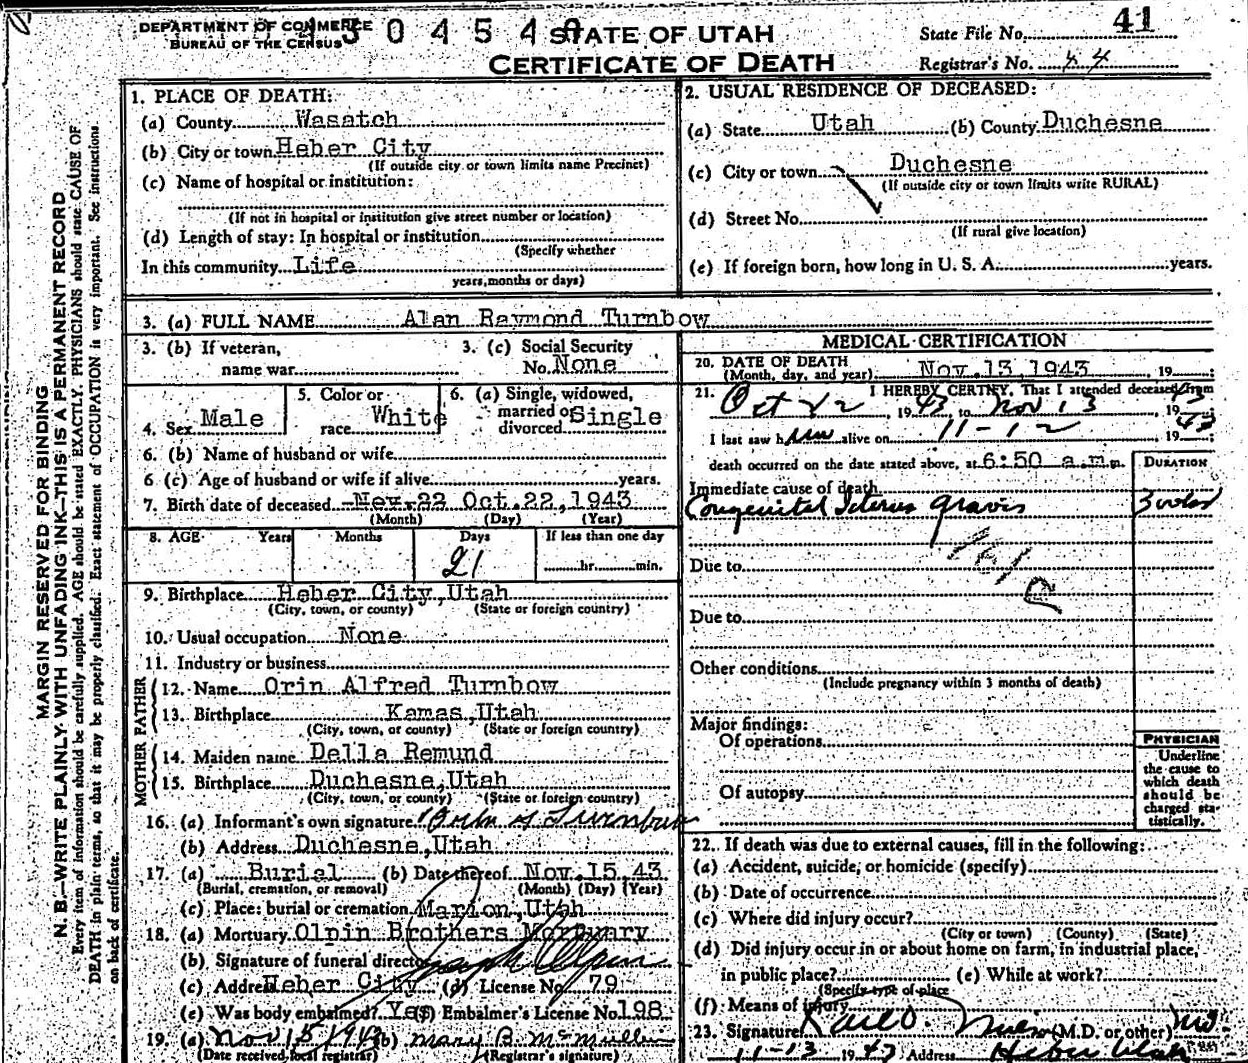 DEPARTMENT OF COMMERCE
BUREAU OF THE CENSUS
3 0 4 5 4
STATE OF UTAH
CERTIFICATE OF DEATH
State File No. 41
Registrar's No.
MARGIN RESERVED FOR BINDING
N. B.—WRITE PLAINLY WITH UNFADING INK—THIS IS A PERMANENT RECORD
Every item of information should be carefully supplied. AGE should be stated EXACTLY. PHYSICIANS should state CAUSE OF
DEATH in plain terms, so that it may be properly classified. Exact statement of OCCUPATION is very important. See instructions
on back of certificate.
1. PLACE OF DEATH:
(a) County Wasatch
(b) City or town Heber City
(If outside city or town limits name Precinct)
(c) Name of hospital or institution:
(If not in hospital or institution give street number or location)
(d) Length of stay: In hospital or institution
(Specify whether
In this community Life
years, months or days)
2. USUAL RESIDENCE OF DECEASED:
(a) State Utah (b) County Duchesne
(c) City or town Duchesne
(If outside city or town limits write RURAL)
(d) Street No.
(If rural give location)
(e) If foreign born, how long in U. S. A. years.
3. (a) FULL NAME Alan Raymond Turnbow
3. (b) If veteran,
name war
3. (c) Social Security
No. None
4. Sex Male
5. Color or
race White
6. (a) Single, widowed,
married or
divorced Single
6. (b) Name of husband or wife
6 (c) Age of husband or wife if alive years.
7. Birth date of deceased Nov. 22 Oct. 22, 1943
(Month) (Day) (Year)
8. AGE Years Months Days If less than one day
21 hr. min.
9. Birthplace Heber City, Utah
(City, town, or county) (State or foreign country)
10. Usual occupation None
11. Industry or business
FATHER
12. Name Orin Alfred Turnbow
13. Birthplace Kamas, Utah
(City, town, or county) (State or foreign country)
MOTHER
14. Maiden name Della Remund
15. Birthplace Duchesne, Utah
(City, town, or county) (State or foreign country)
16. (a) Informant's own signature Turnbow
(b) Address Duchesne, Utah
17. (a) Burial (b) Date thereof Nov. 15, 43
(Burial, cremation, or removal) (Month) (Day) (Year)
(c) Place: burial or cremation Marion, Utah
18. (a) Mortuary Olpin Brothers Mortuary
(b) Signature of funeral director Olpin
(c) Address Heber City (d) License No. 79
(e) Was body embalmed? Yes (f) Embalmer's License No. 198
19. (a) Nov 15 1943 (b) Mary B. McMullin
(Date received local registrar) (Registrar's signature)
MEDICAL CERTIFICATION
20. DATE OF DEATH
(Month, day, and year) Nov. 13 1943, 19
21. I HEREBY CERTIFY, That I attended deceased from
Oct 22, 1943 to Nov 13 1943;
I last saw him alive on 11-12, 1943;
death occurred on the date stated above, at 6:50 a.m. DURATION
Immediate cause of death
Congenital Icterus gravis 3 wks
161
Due to
Due to
Other conditions
(Include pregnancy within 3 months of death)
Major findings:
Of operations
Of autopsy
PHYSICIAN
Underline
the cause to
which death
should be
charged sta-
tistically.
22. If death was due to external causes, fill in the following:
(a) Accident, suicide, or homicide (specify)
(b) Date of occurrence
(c) Where did injury occur?
(City or town) (County) (State)
(d) Did injury occur in or about home on farm, in industrial place,
in public place? (e) While at work?
(Specify type of place
(f) Means of injury
23. Signature (M.D. or other) MD
11-13 1943 Address Heber Utah